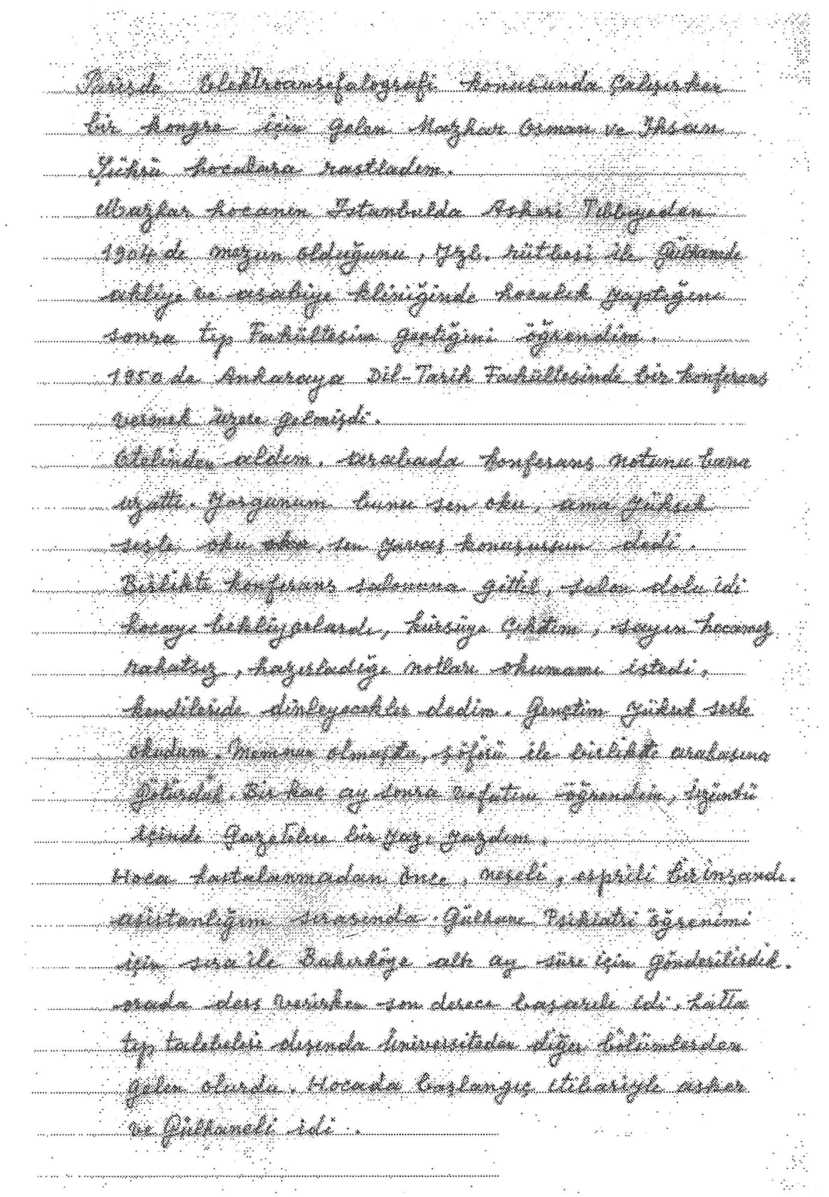 Parisde Elektroansefalografi konusunda Çalışırken
bir kongre için gelen Mazhar Osman ve Ihsan
Şükrü hocalara rastladım.
Mazhar hocanın Istanbulda Askeri Tıbbiyeden
1904 de mezun olduğunu, Yzb. rütbesi ile Gülhanede
akliye ve asabiye kliniğinde hocalık yaptığını
sonra tıp Fakültesine geçtiğini öğrendim.
1950 de Ankaraya Dil-Tarih Fakültesinde bir konferans
vermek üzere gelmişdi.
Otelinden aldım. arabada konferans notunu bana
uzattı. Yorgunum bunu sen oku, ama yüksek
sesle oku, sen yavaş konuşursun dedi.
Birlikte konferans salonuna gittik, salon dolu idi
hocayı bekliyorlardı, kürsüye Çıktım, sayın hocamız
rahatsız, hazırladığı notları okumamı istedi,
kendileride dinleyecekler dedim. Gençtim yüksek sesle
okudum. Memnun olmuştu, şöförü ile birlikte arabasına
götürdük. Bir kaç ay sonra vefatını öğrendim, üzüntü
içinde Gazetelere bir yazı yazdım.
Hoca hastalanmadan önce, neşeli, esprili bir insandı.
asistanlığım sırasında Gülhane Psikiatri öğrenimi
için sıra ile Bakırköye altı ay süre için gönderilirdik.
orada ders verirken son derece başarılı idi. hatta
tıp talebeleri dışında Üniversiteden diğer bölümlerden
gelen olurdu. Hocada başlangıç itibariyle asker
ve Gülhaneli idi.